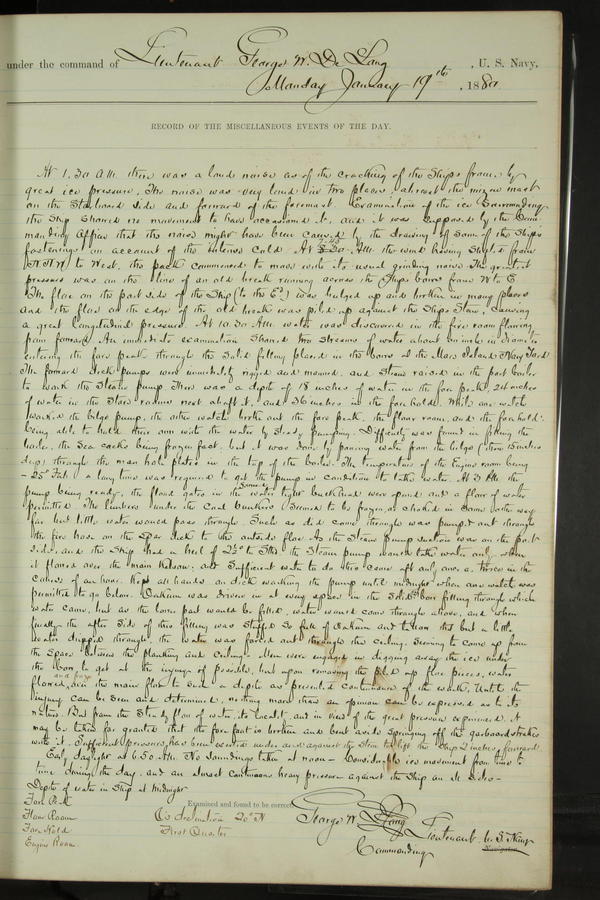 under the command of Lieutenant George W. De Long, U. S. Navy,
Monday January 19th, 1880
RECORD OF THE MISCELLANEOUS EVENTS OF THE DAY.
At 1.30 A.M. there was a loud noise as of the cracking of the Ships frame by
great ice pressure. The noise was very loud in two places, abreast the mizzen mast
on the Starboard side and forward of the foremast. Examination of the ice surrounding
the Ship showed no movement to have occasioned it, and it was supposed by the Com-
manding Officer that the noise might have been caused by the drawing of some of the Ship's
fastenings on account of the intense Cold. At A.M. the wind having shifted from
N.N.W. to West, the pack commenced to move with its usual grinding noise. The greatest
pressure was on the line of an old break running across the Ships bows from W to E
The floe on the port side of the Ship (to the E) was bulged up and broken in many places
and the floe on the edge of the old break was piled up against the Ships Stem, causing
a great longitudinal pressure. At 10.30 A.M. water was discovered in the fire room flowing
from forward. An immediate examination showed two streams of water about an inch in diameter
entering the fore peak through the solid filling placed in the bows at the Mare Island Navy Yard.
The forward deck pumps were immediately rigged and manned, and Steam raised in the port boiler
to work the Steam pump. There was a depth of 18 inches of water in the fore peak, 24 inches
of water in the Store rooms next abaft it, and 36 inches in the fore hold. While one watch
worked the bilge pump, the other watch broke out the fore peak, the flour room, and the forehold:
being able to hold their own with the water by steady pumping. Difficulty was found in filling the
boiler, the sea cocks being frozen fast, but it was done by pouring water from the bilge (there 5 inches
deep) through the man hole plates in the top of the boiler. The temperature of the Engine room being
-25° Fah. a long time was required to get the pump in condition to take water. At 3 P.M. the
pump being ready, the flood gates in the water tight bulkhead were opened and a flow of water
permitted. The limbers under the Coal bunkers seemed to be frozen or choked in some other way
for but little water would pass through. Such as did come through was pumped out through
the fire hose on the Spar deck to the outside floe. As the Steam pump suction was on the port
side, and the Ship had a heel of 2½° to Stbd the Steam pump would take water only when
it flowed over the main keelson; and sufficient water to do this came aft only once or twice in the
course of an hour. Kept all hands on deck working the pump until midnight when one watch was
permitted to go below. Oakum was driven in at every space in the solid bow filling through which
water came, but as the lower part would be filled, water would come through above, and when
finally the after side of this filling was stuffed so full of Oakum and tallow that but a little
water dripped through, the water was forced out through the ceiling, seeming to come up from
the space between the planking and ceiling. Men were engaged in digging away the ice under
the bow, to get at the injury if possible, but upon removing the piled up floe pieces, water
flowed, and froze over the main floe to such a depth as prevented continuance of the work. Until the
injury can be seen and determined, nothing more than an opinion can be expressed as to its
nature. But from the steady flow of water, its locality, and in view of the great pressure experienced, it
may be taken for granted that the fore foot is broken and bent aside springing off the garboard strakes
with it. Sufficient pressure has been exerted under and against the Stem to lift the Ship 2 inches forward.
Early daylight at 6.50 A.M. No soundings taken at noon - Considerable ice movement from time to
time during the day, and an almost continuous heavy pressure against the Ship
Depth of water in Ship at Midnight
Fore Peak
Flour Room
Fore Hold
Engine Room.
☾'s declination 20° N
First Quarter
Examined and found to be correct.
George W. De Long Lieutenant U. S. Navy
Commanding
Navigator.